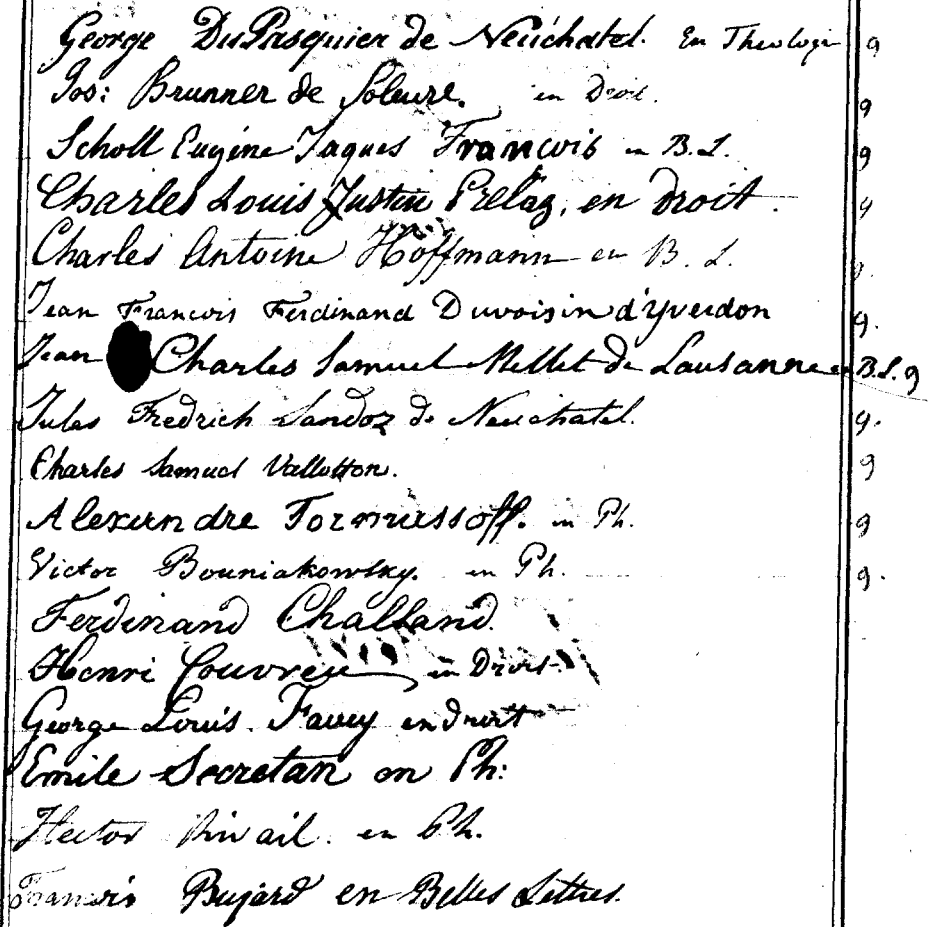 George DuPasquier de Neuchatel. En Theologie 9
Jos: Brunner de Soleure. en Droit. 9
Scholl Eugène Jaques François en B.L. 9
Charles Louis Justin Prélaz, en droit. 9
Charles Antoine Hoffmann en B. L. 9.
Jean François Ferdinand Duvoisin d'Yverdon 9.
Jean Charles Samuel Mellet de Lausanne en B.L. 9
Jules Fredrich Sandoz de Neuchatel. 9.
Charles Samuel Vallotton. 9
Alexandre Tormassoff. en Ph. 9
Victor Bouniakowsky. en Ph. 9.
Ferdinand Challand
Henri Couvreu en Droit.
George Louis Favey en droit
Emile Secretan en Ph:
Hector en Ph.
François Bujard en Belles Lettres.